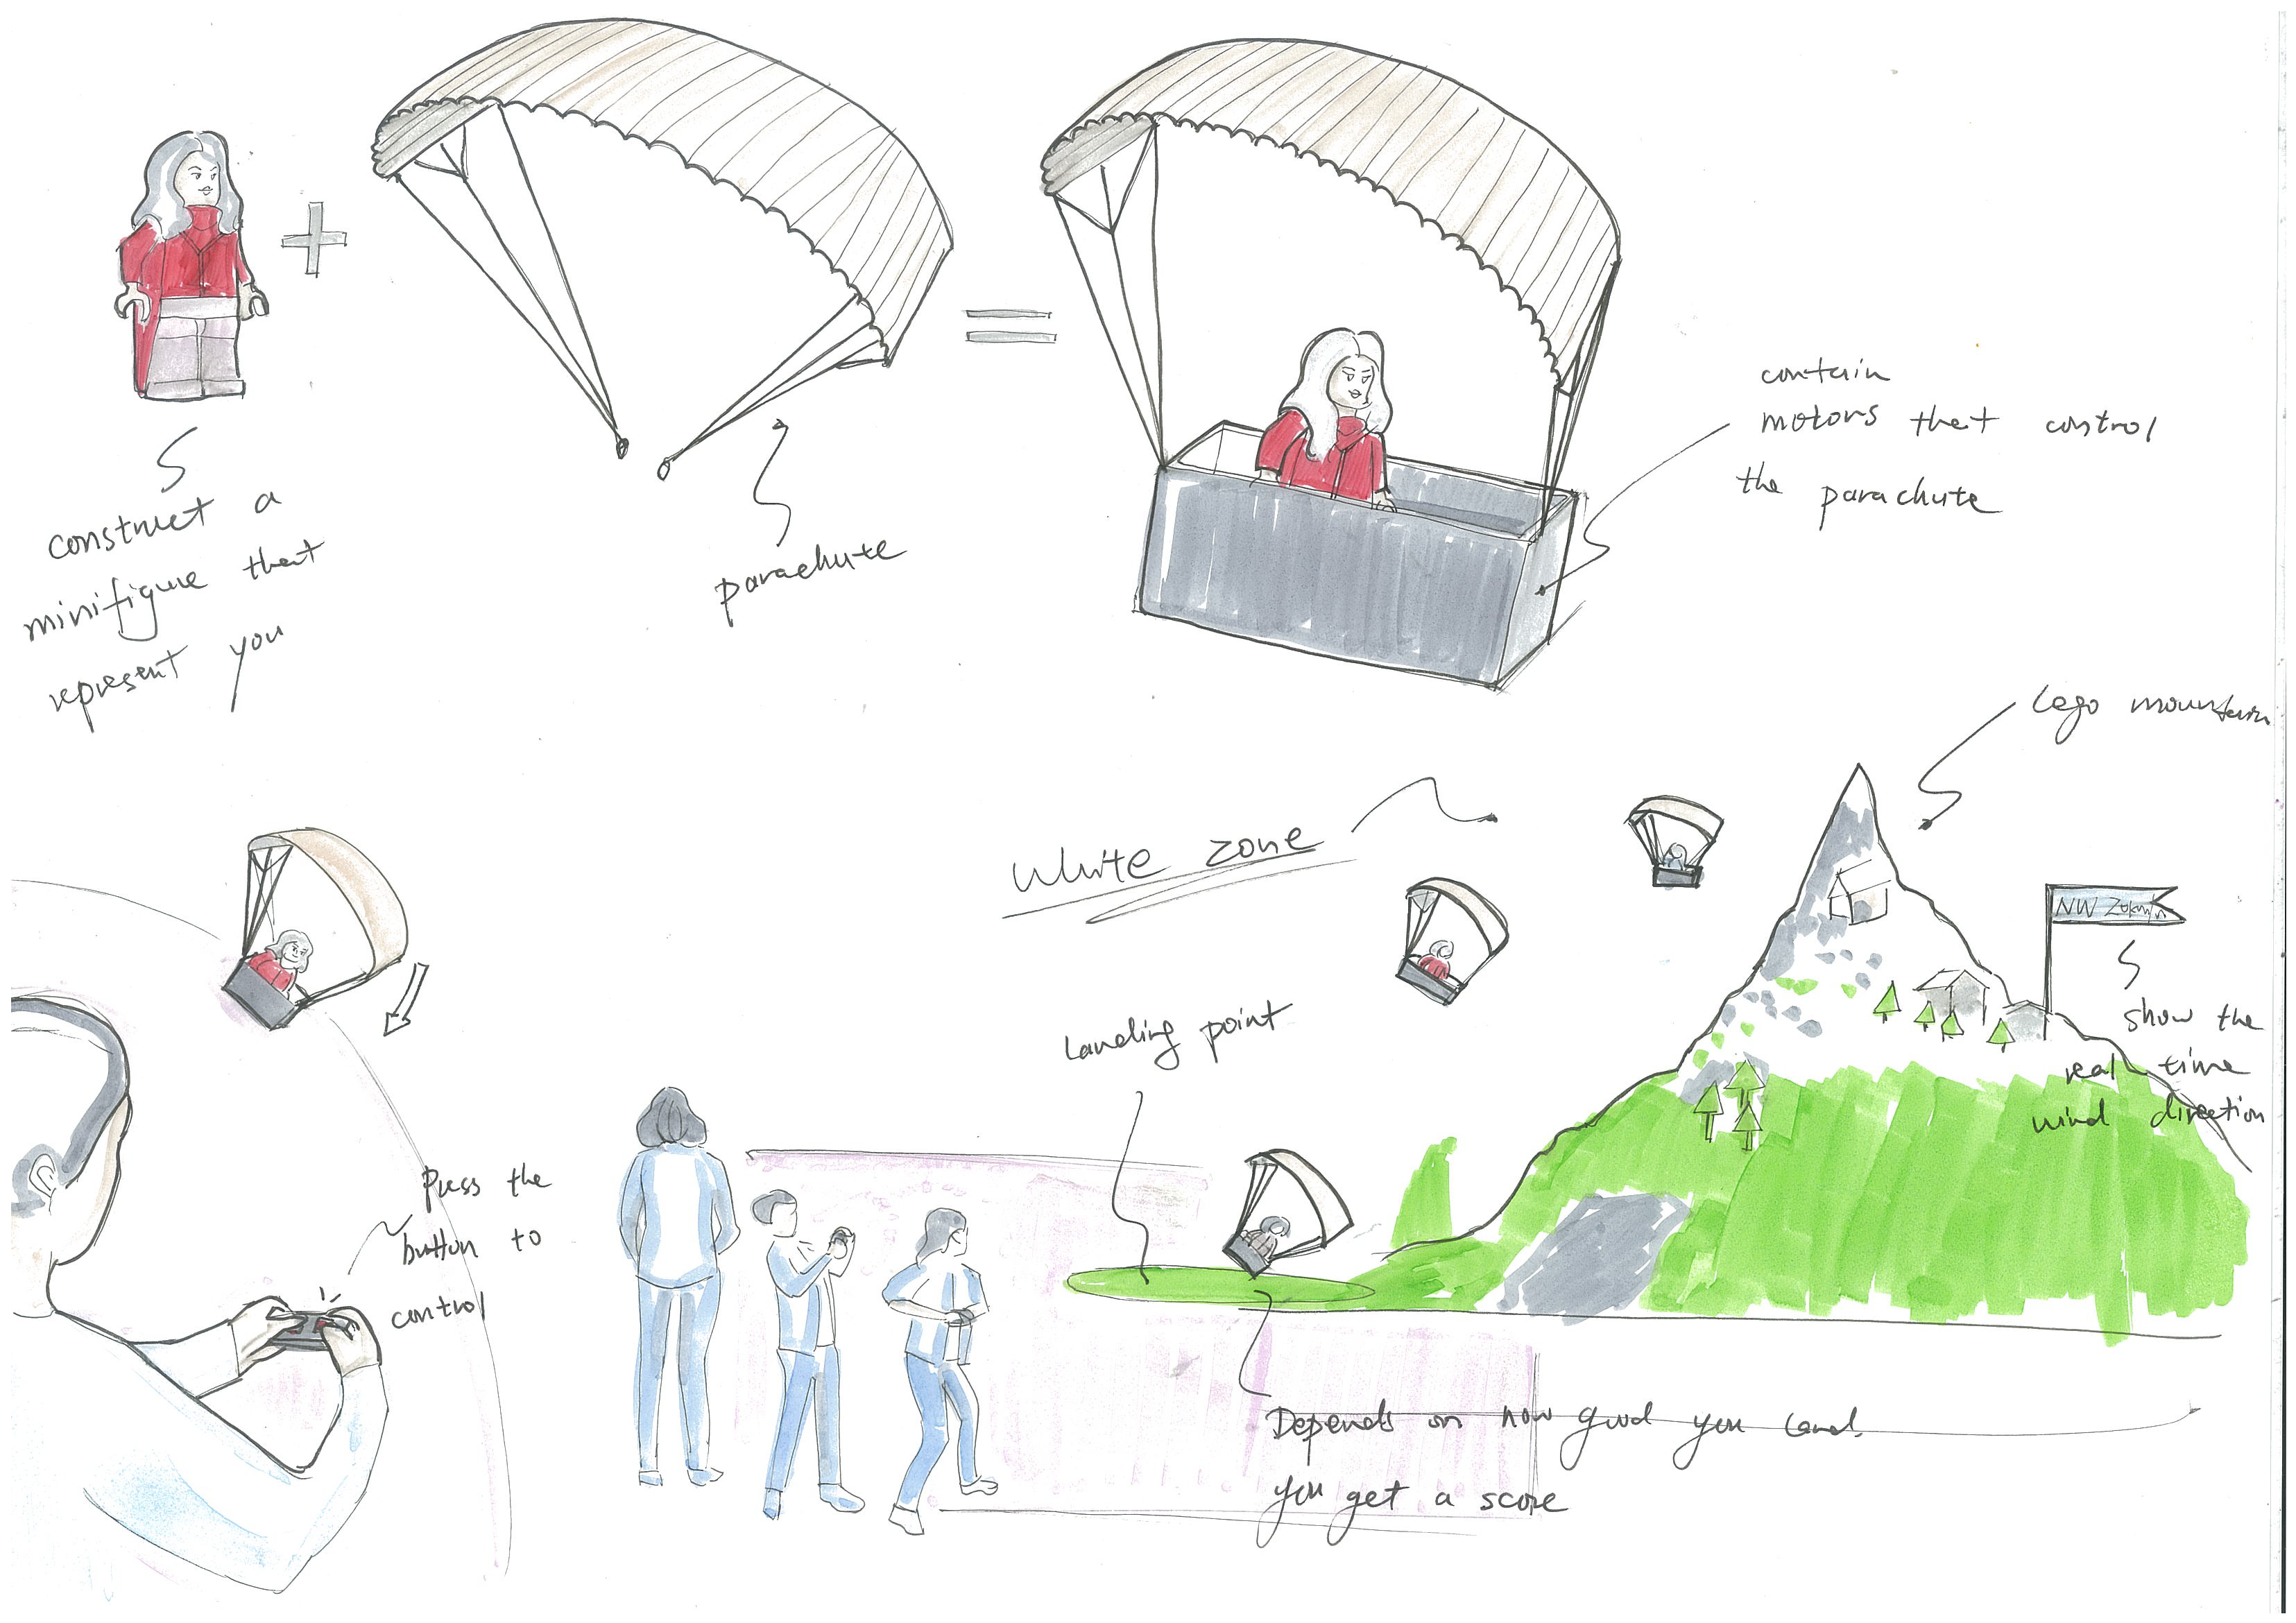 construct a
minifigure that
represent you
parachute
contain
motors that control
the parachute
Lego mountain
White zone
Landing point
NW
show the
real time
wind direction
Press the
button to
control
Depends on how good you land.
you get a score